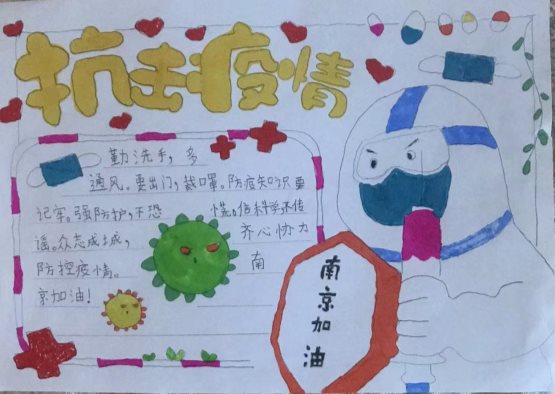 抗击疫情
勤洗手，多
通风。要出门，戴口罩。防疫知识要
记牢。强防护，不恐慌。信科学不传
谣。众志成城，齐心协力
防控疫情。南
京加油！
南京加油